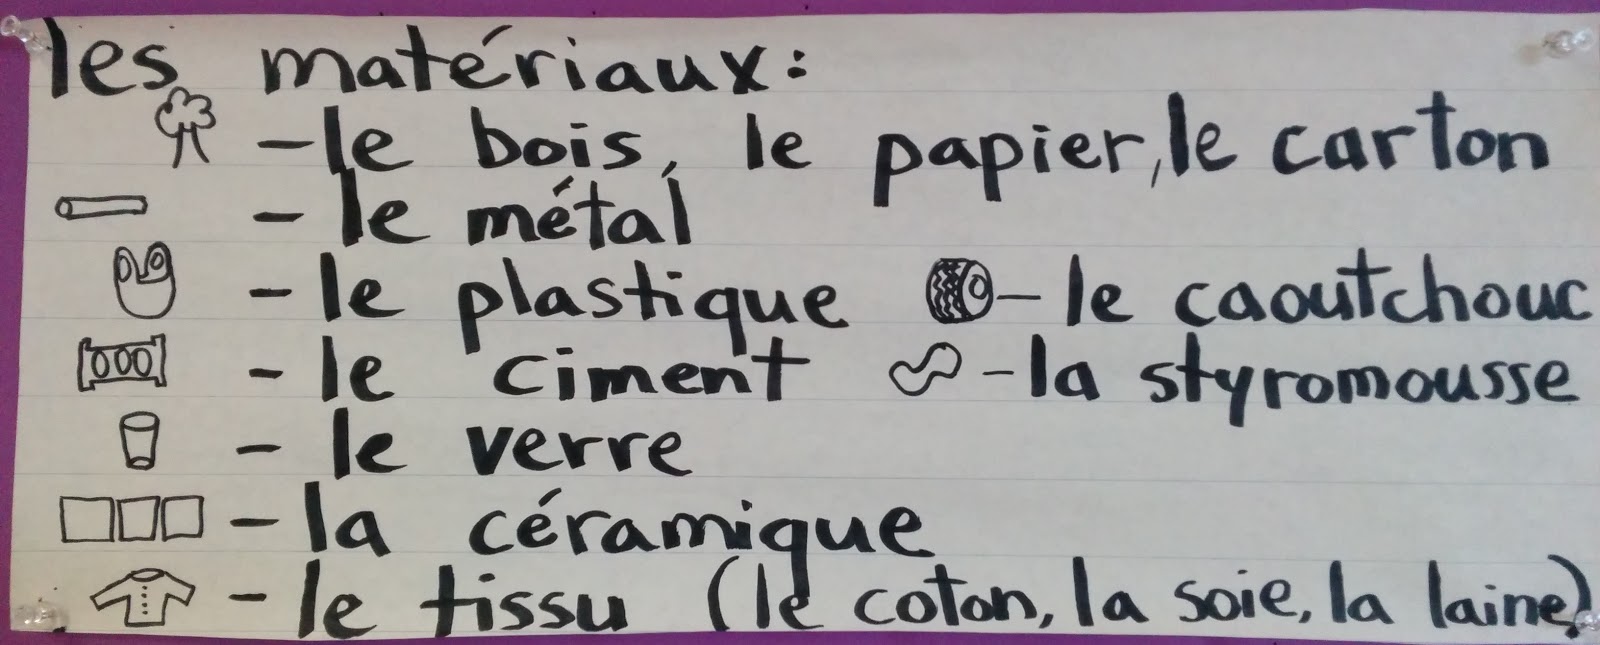 les matériaux:
- le bois, le papier, le carton
- le métal
- le plastique - le caoutchouc
- le ciment - la styromousse
- le verre
- la céramique
- le tissu (le coton, la soie, la laine)